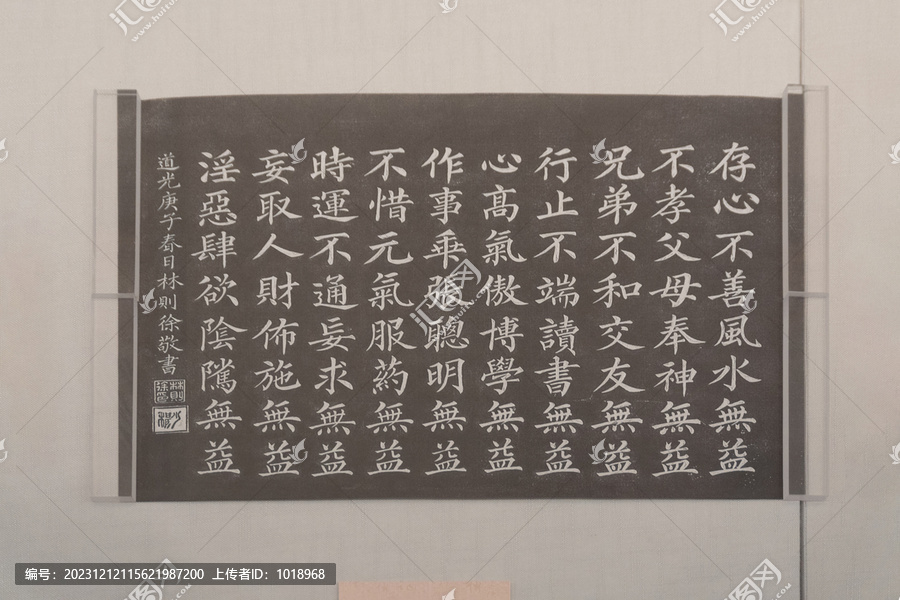 存心不善風水無益
不孝父母奉神無益
兄弟不和交友無益
行止不端讀書無益
心高氣傲博學無益
作事乖張聰明無益
不惜元氣服药無益
時運不通妄求無益
妄取人財佈施無益
淫惡肆欲陰騭無益
道光庚子春日林則徐敬書
林則
徐印
编号：20231212115621987200 上传者ID：1018968